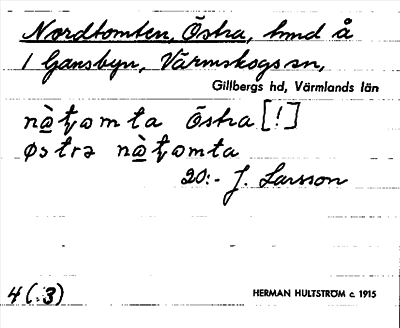 Nordtomten, Östra, hmd å
1 Gansbyn, Värmskogs sn,
Gillbergs hd, Värmlands län
Östra [!]
20:- J. Larsson
4(:3)
HERMAN HULTSTRÖM c. 1915